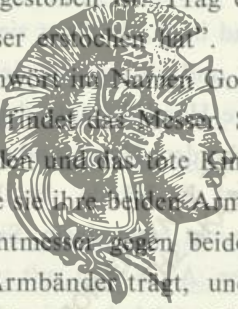 gestoßen
ser erstochen hat”.
nwort im Namen Go
findet das Messer. S
len und das tote Kin
e sie ihre beiden Arm
ntmesser gegen beide
Armbänder trägt, und